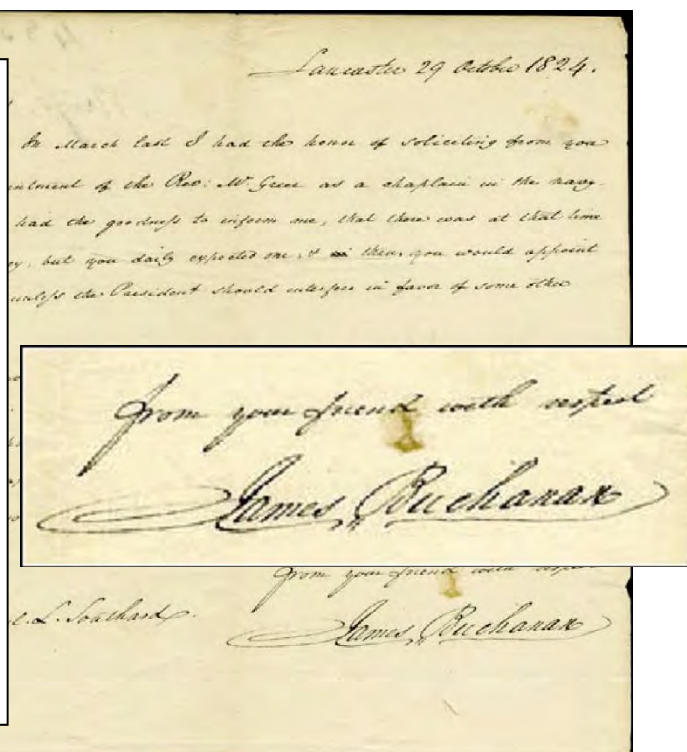 Lancaster 29 October 1824.
In March last I had the honor of soliciting from you
intment of the Rev: Mr. Greer as a chaplain in the navy.
had the goodness to inform me, that there was at that time
cy, but you daily expected one, & then, you would appoint
unless the President should interfere in favor of some other
from your friend with respect
James Buchanan
from your friend with respect
L. Southard.
James Buchanan